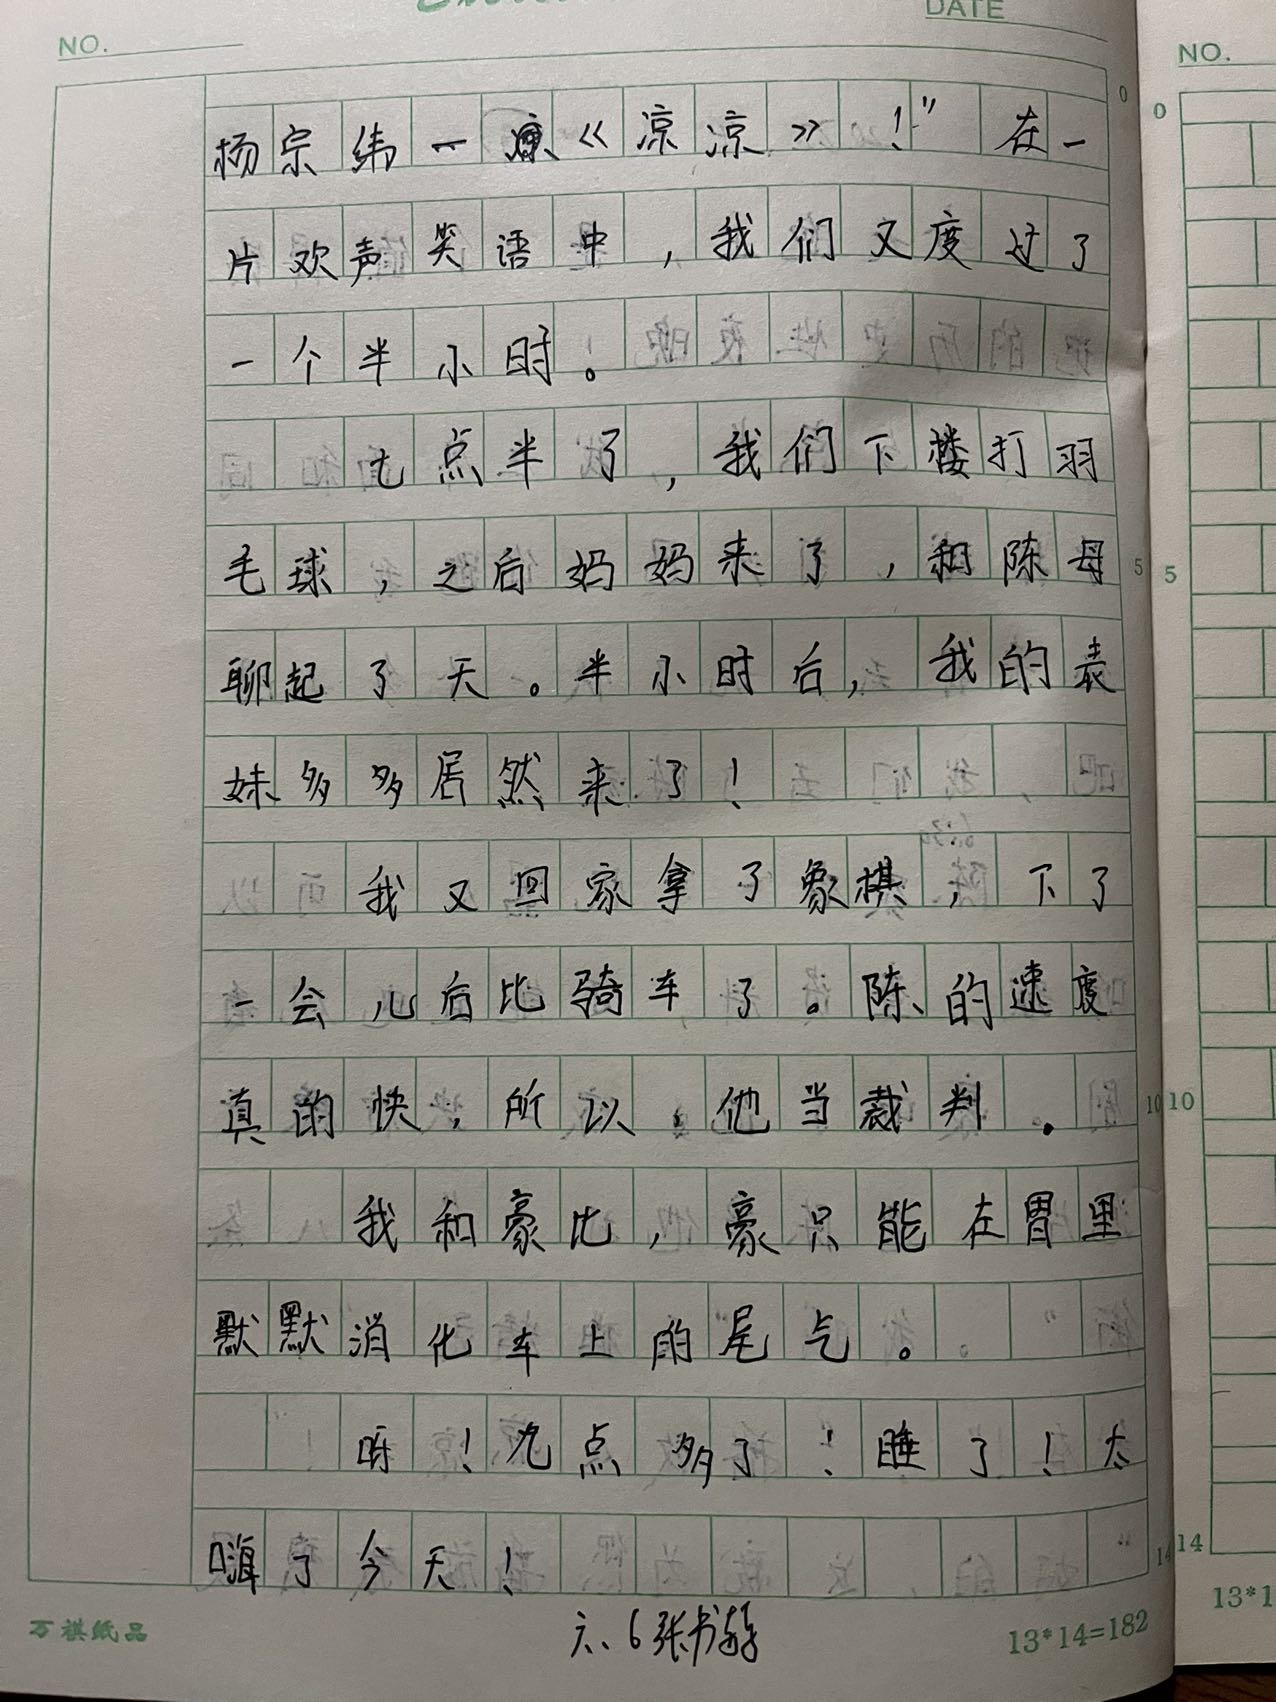 NO.
DATE
NO.
杨宗纬一《凉凉》！”在一
片欢声笑语中，我们又度过了
一个半小时。
七点半了，我们下楼打羽
毛球，之后妈妈来了，和陈母
聊起了天。半小时后，我的表
妹多多居然来了！
我又回家拿了象棋，下了
一会儿后比骑车了。陈的速度
真的快，所以，他当裁判。
我和豪比，豪只能在胃里
默默消化车上的尾气。
呀！九点多了！睡了！太
嗨了今天！
万祺纸品
六、6张书
13*14=182
0
5
10
14
0
5
10
14
13*1